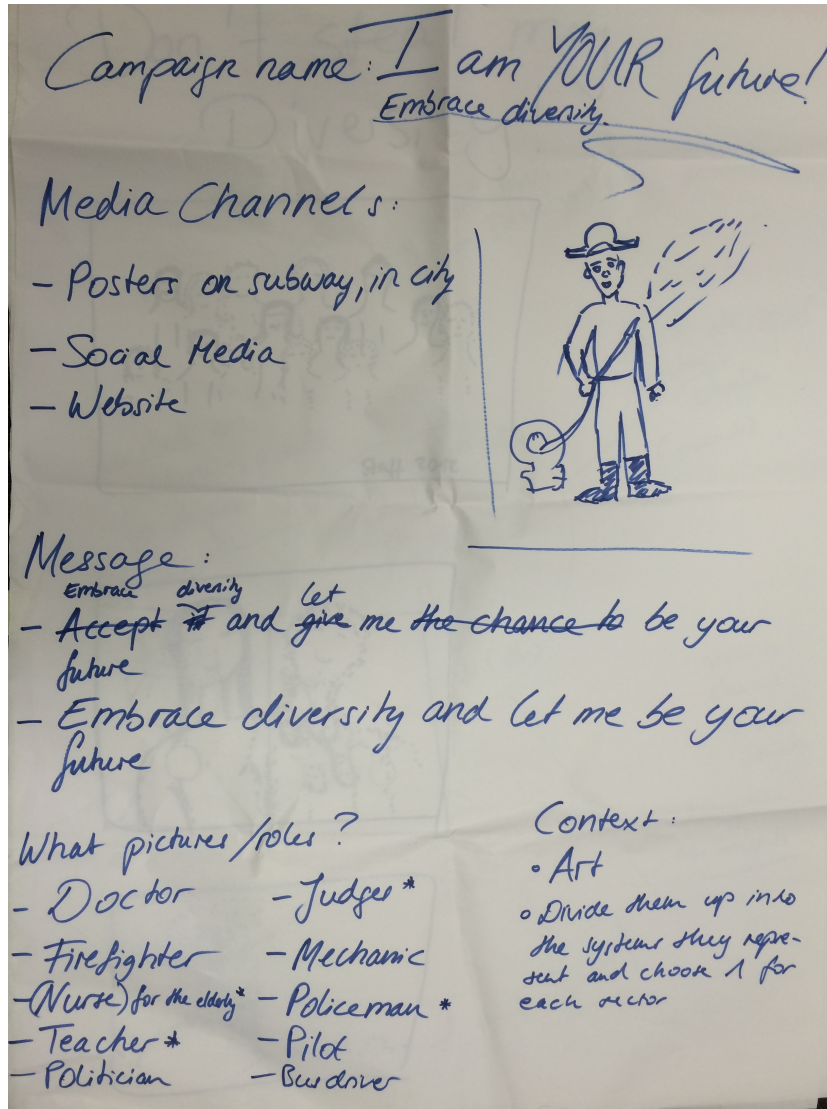 Campaign name: I am YOUR future!
Embrace diversity.
Media Channels:
- Posters on subway, in city
- Social Media
- Website
Message:
Embrace diversity let
- Accept it and give me the chance to be your
future
- Embrace diversity and let me be your
future
What pictures/roles?
- Doctor
- Firefighter
- (Nurse) for the elderly*
- Teacher *
- Politician
- Judges *
- Mechanic
- Policeman *
- Pilot
- Busdriver
Context:
• Art
• Divide them up into
the systems they repre-
sent and choose 1 for
each sector